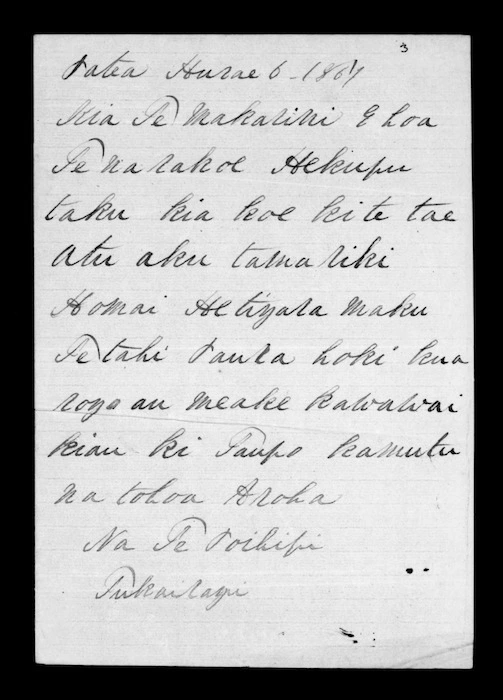 3
Patea Hurae 6 - 1867
Kia Te Makarini E hoa
Tenarakoe Hekupu
taku kia koe kite tae
Atu aku tamariki
Homai Hetiyara maku
Tetahi Paura hoki kua
rogo au meake kawawai
kiau ki Taupo kamutu
na tohoa Aroha
Na Te Poihipi
Tukairagi